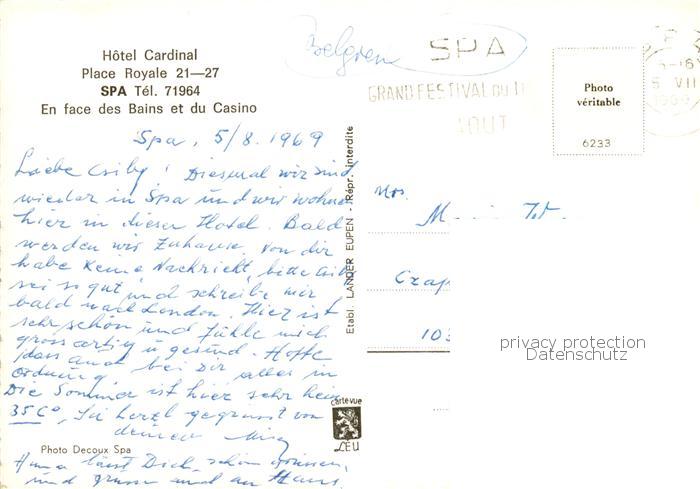 Hôtel Cardinal
Place Royale 21—27
SPA Tél. 71964
En face des Bains et du Casino
Belgien
SPA
GRAND FESTIVAL DU
AOUT
Photo
véritable
6233
Spa, 5/8. 1969
Liebe Csiby! Diesmal wir sind
wieder in Spa und wir wohnen
hier in dieser Hotel. Bald
werden wir Zuhause. Von dir
habe keine Nachricht, bitte
sei so gut und schreibe mir
bald nach London. Hier ist
sehr schön und fühle mich
grossartig u gesund. Hoffe
dass auch bei Dir alles in
ordnung.
Die Sommer ist hier sehr heiss
35 C°, Sei herzl gegrüsst von
deiner
lässt Dich schön grüssen,
und grüsse und an Hans.
Photo Decoux Spa
Etabl. LANDER EUPEN - Répr. interdite
carte vue
LEU
Mrs.
M
Czap
103
privacy protection
Datenschutz